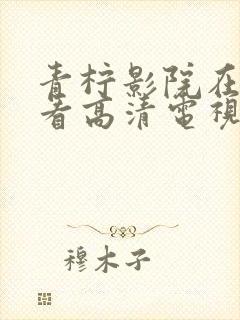 青柠影院在
看高清电视
穆木子